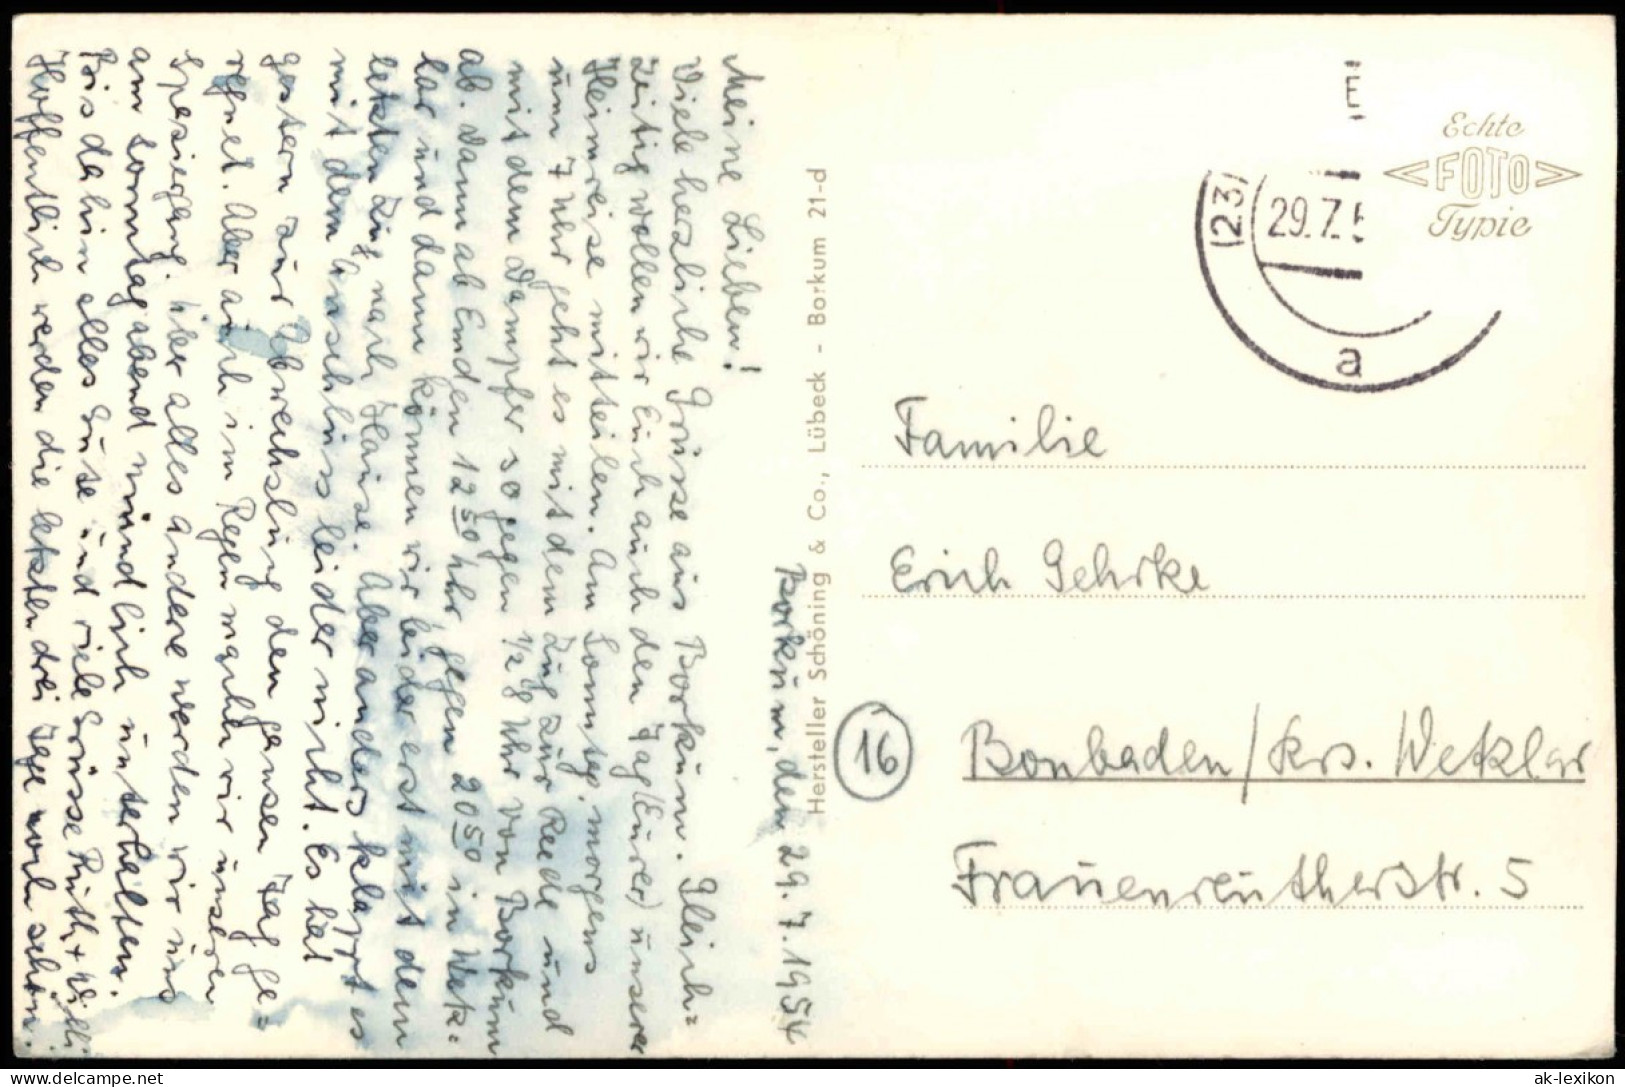 Borkum, den 29.7.1954
Meine Lieben!
Viele herzliche Grüsse aus Borkum. Gleich=
zeitig wollen wir Euch auch den Tag (Eurer) unserer
Heimreise mitteilen. Am Sonntag, morgens
um 7 Uhr geht es mit dem Zug zur Reede und
mit dem Dampfer so gegen 1/2 8 Uhr von Borkum
ab. Dann ab Emden 12 50 Uhr gegen 20 50 in Wetz=
lar und dann können wir leider erst mit dem
letzten Zug nach Hause. Aber anders klappt es
mit dem Anschluss leider nicht. Es hat
gestern zur Abwechslung den ganzen Tag ge=
regnet. Aber auch im Regen machen wir unseren
Spaziergang. Über alles andere werden wir uns
am Sonntagabend mündlich unterhalten.
Bis dahin alles Gute und viele Grüsse Ruth + Willi
Hoffentlich werden die letzten drei Tage noch schön.
Hersteller Schöning & Co., Lübeck - Borkum 21-d
E
Echte
FOTO
Typie
(23)
29.7.5
a
Familie
Erich Gehrke
16
Bonbaden/Krs. Wetzlar
Frauenreutherstr. 5
delcampe.net
ak-lexikon